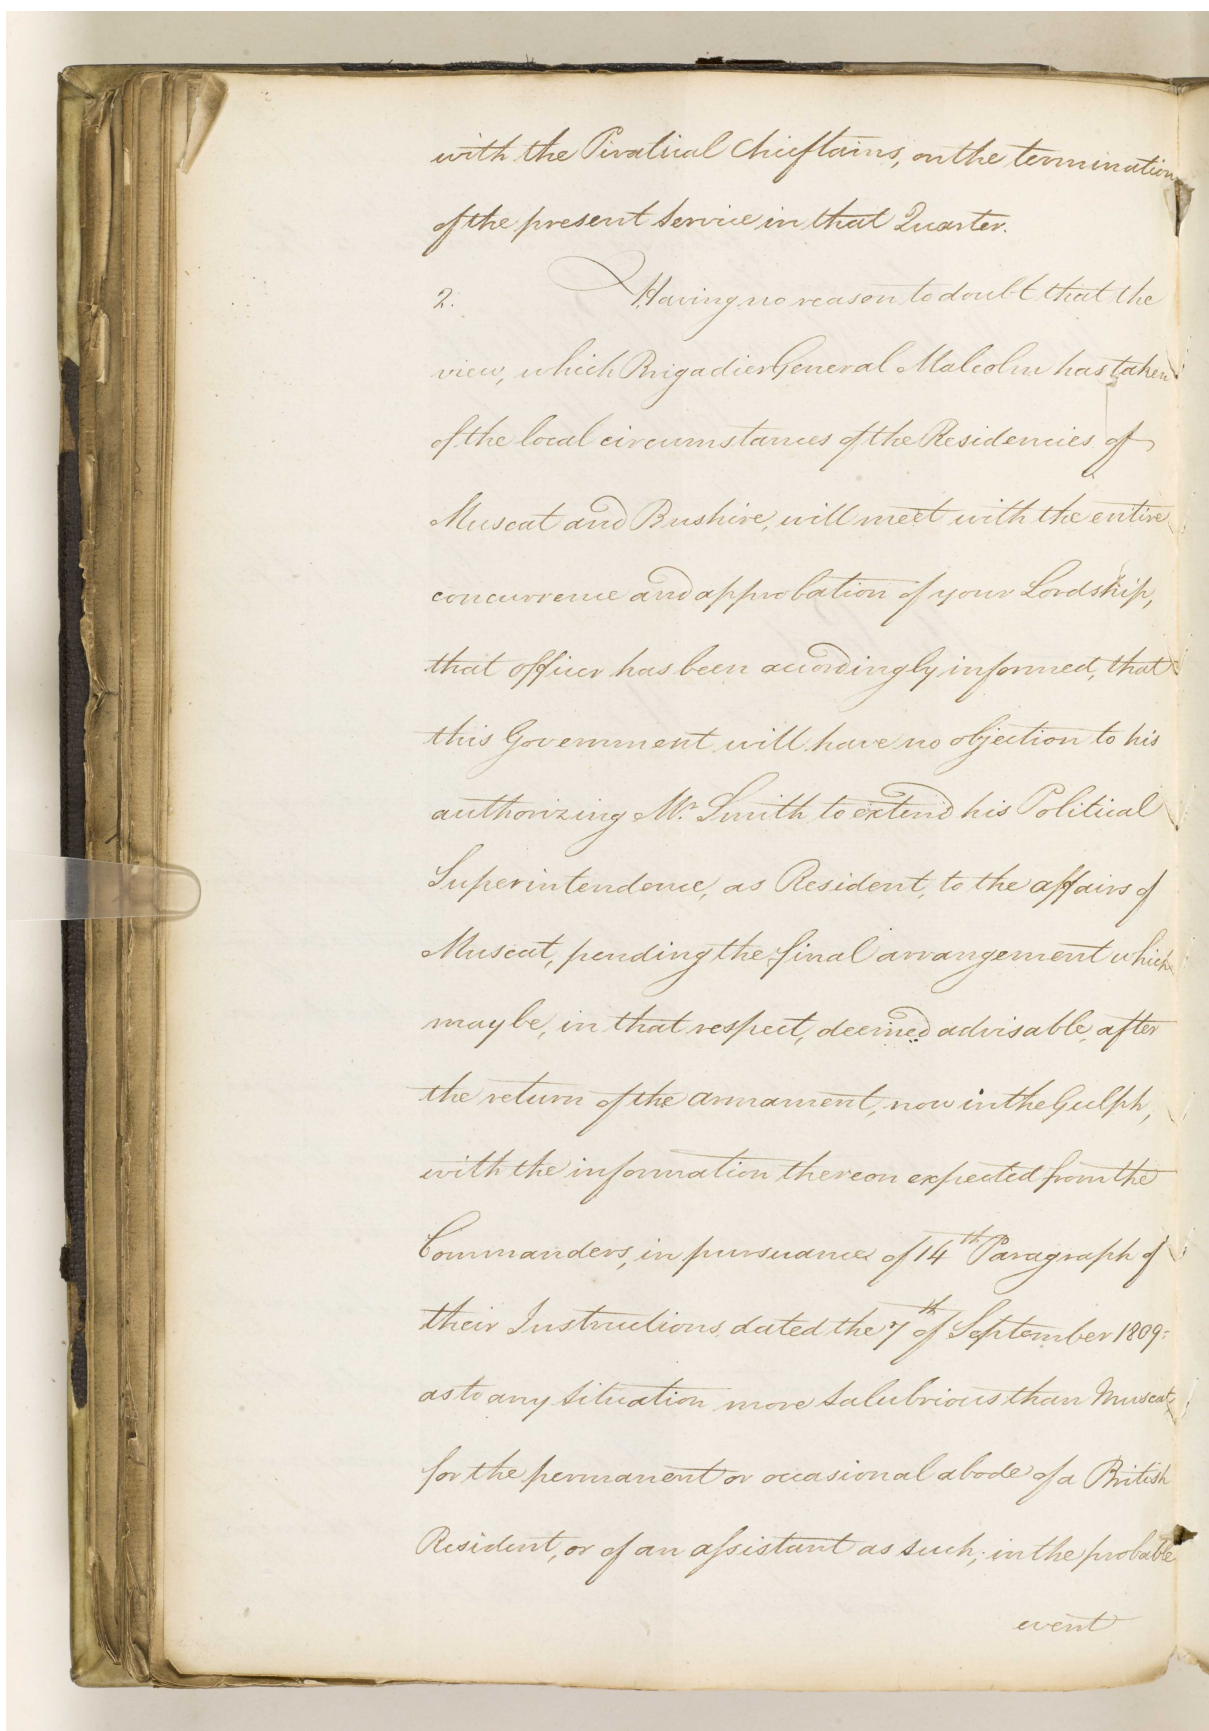 with the Piratical Chieftains, on the termination
of the present Service in that Quarter.
2. Having no reason to doubt that the
view, which Brigadier General Malcolm has taken
of the local circumstances of the Residencies of
Muscat and Bushire, will meet with the entire
concurrence and approbation of your Lordship,
that officer has been accordingly informed, that
this Government will have no objection to his
authorizing Mr. Smith to extend his Political
Superintendence, as Resident, to the affairs of
Muscat, pending the final arrangement which
may be, in that respect, deemed advisable, after
the return of the armament, now in the Gulph,
with the information thereon expected from the
Commanders, in pursuance of 14th Paragraph of
their Instructions, dated the 7th of September 1809:
as to any situation more salubrious than Muscat,
for the permanent or occasional abode of a British
Resident, or of an assistant as such; in the probable
event